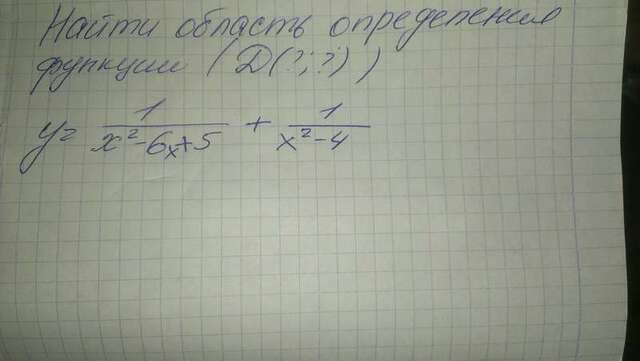 Найти область определения
функции (D(?;?))
y = 1/(x²-6x+5) + 1/(x²-4)